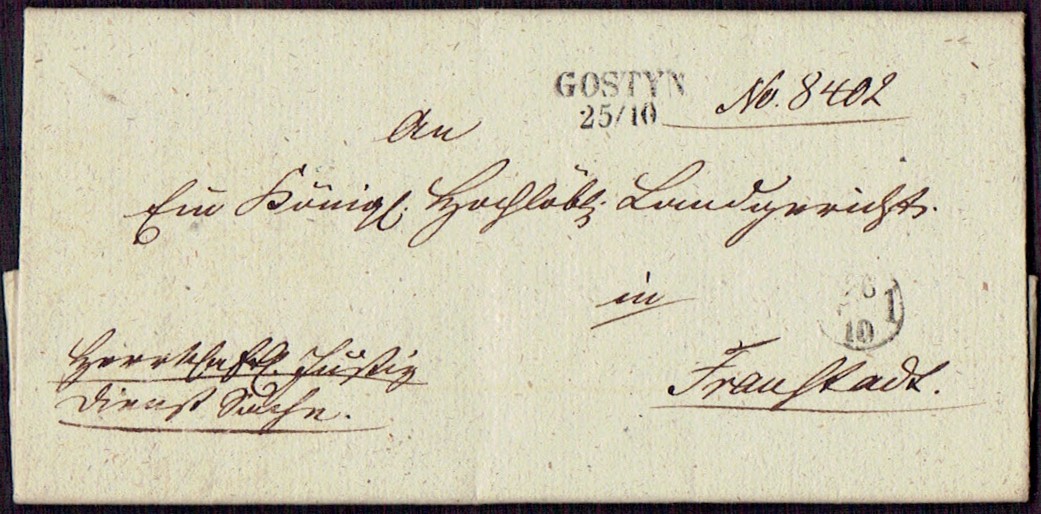 GOSTYN
25/10
No. 8402
An
Ein Königl. Hochlöbl. Landgericht.
in
26
10
1
Fraustadt.
Herrschaftl. Justiz
Dienst Sache.